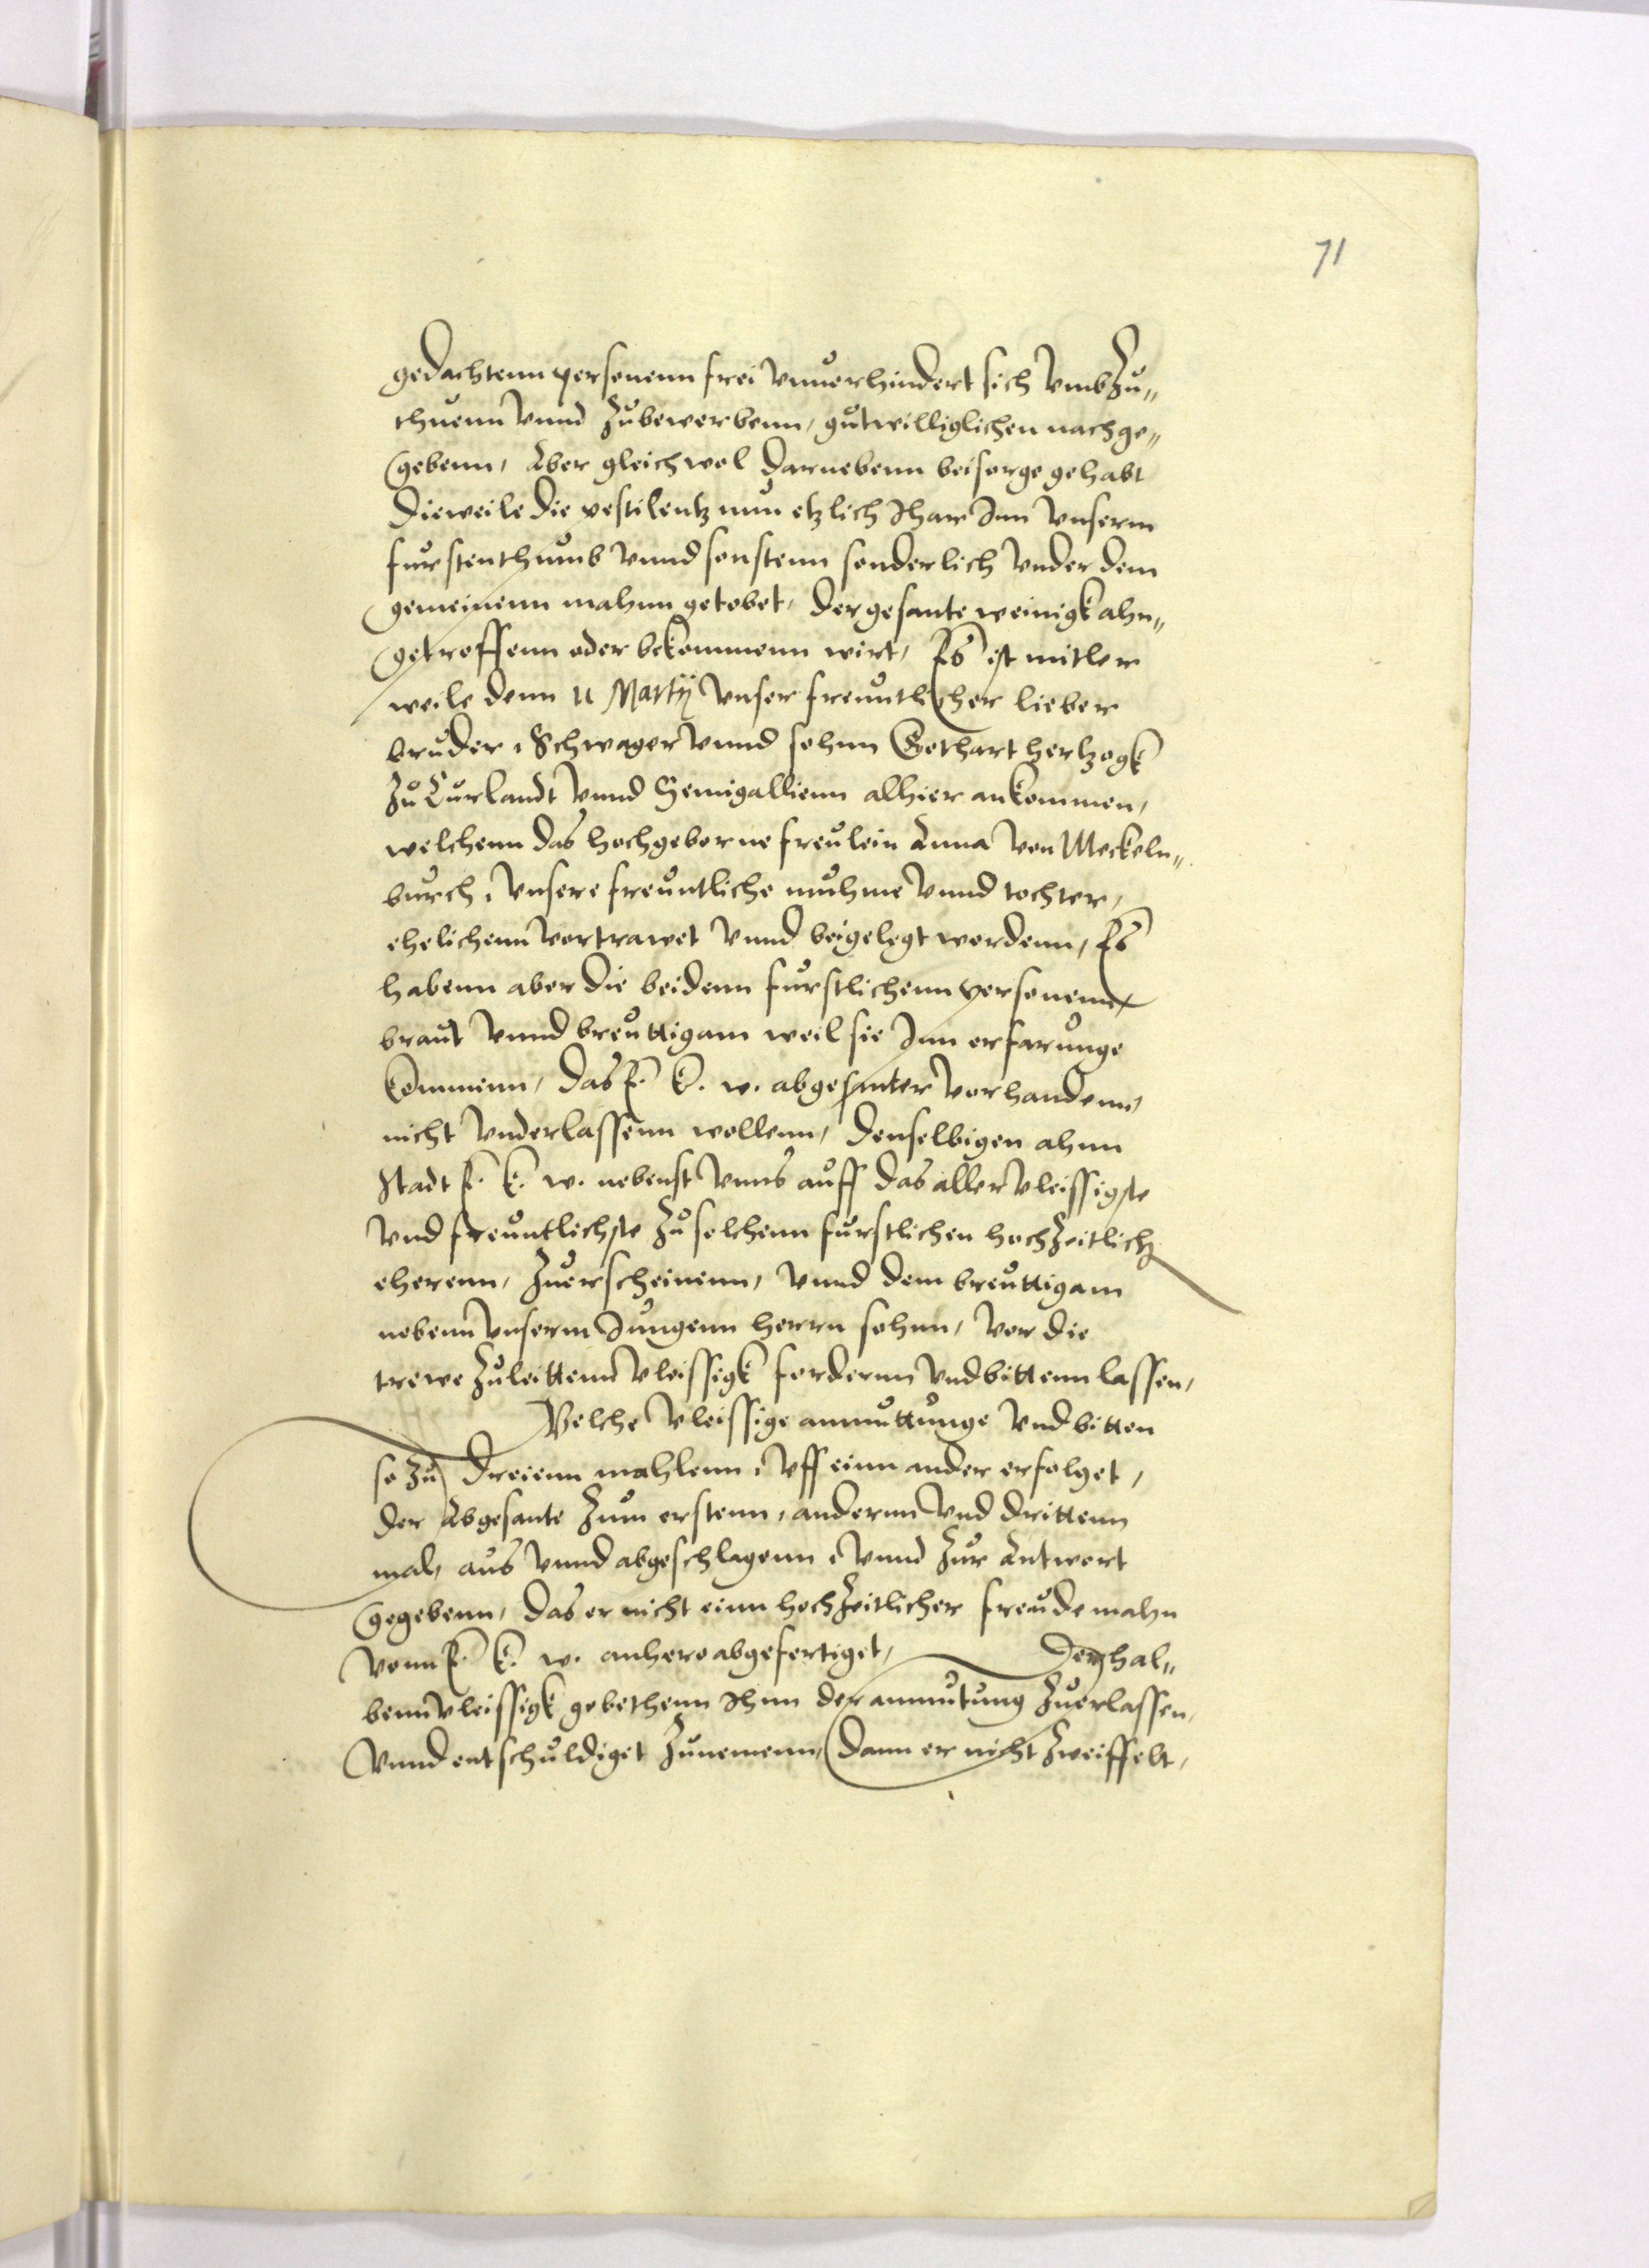 71
gedachtenn personenn frei vnuerhindert sich vmbzu„
thuenn vnnd zubewerbenn, gutwilliglichen nachge„
gebenn, Aber gleichwol darnebenn beisorge gehabt
dieweile die pestilentz nun etzlich Jhar Jnn vnserm
furstenthumb vnnd sonstenn sonderlich vnder dem
gemeinenn mahnn getobet, der gesante weinigk ahn„
getroffenn oder bekommenn wirt, Es ist mitler
weile denn 11 Martij vnser freuntlicher lieber
bruder, Schwager vnnd sohnn Gothart hertzogk
zu Curlandt vnnd Semigallienn alhier ankommen,
welchenn das hochgeborne freulein Anna von Meckeln„
burch, vnsere freuntliche muhme vnnd tochter,
ehelichenn vortrawet vnnd beigelegt wordenn, Es
habenn aber die beidenn furstlichenn personenn
braut vnnd breuttigam weil sie Jnn erfarunge
kommenn, das E. k. w. abgesanter vorhandenn,
nicht vnderlassenn wollenn, denselbigen ahnn
Stadt E. k. w. nebenst vnns auff das aller vleissigste
vnd freuntlichste zu solchenn furstlichen hochzeitlich
eherenn, zuerscheinenn, vnnd dem breuttigam
nebenn vnserm Jungenn herrn sohnn, vor die
trewe zuleittenn vleissigk fordernn vnd bittenn lassen,
Welche vleissige anmuttunge vnd bitten
so zu dreienn mahlenn, vff einn ander erfolget,
der Abgesante zum erstenn, andernn vnd drittenn
mal, aus vnnd abgeschlagenn, vnnd zur Antwort
gegebenn, das er nicht einn hochzeitlicher freude mahn
vonn E. k. w. anhero abgefertiget, Derhal„
benn vleissigk gebethenn Jhnn der anmutung zuerlassen,
vnnd entschuldiget zunemenn, dann er nicht zweiffelt,